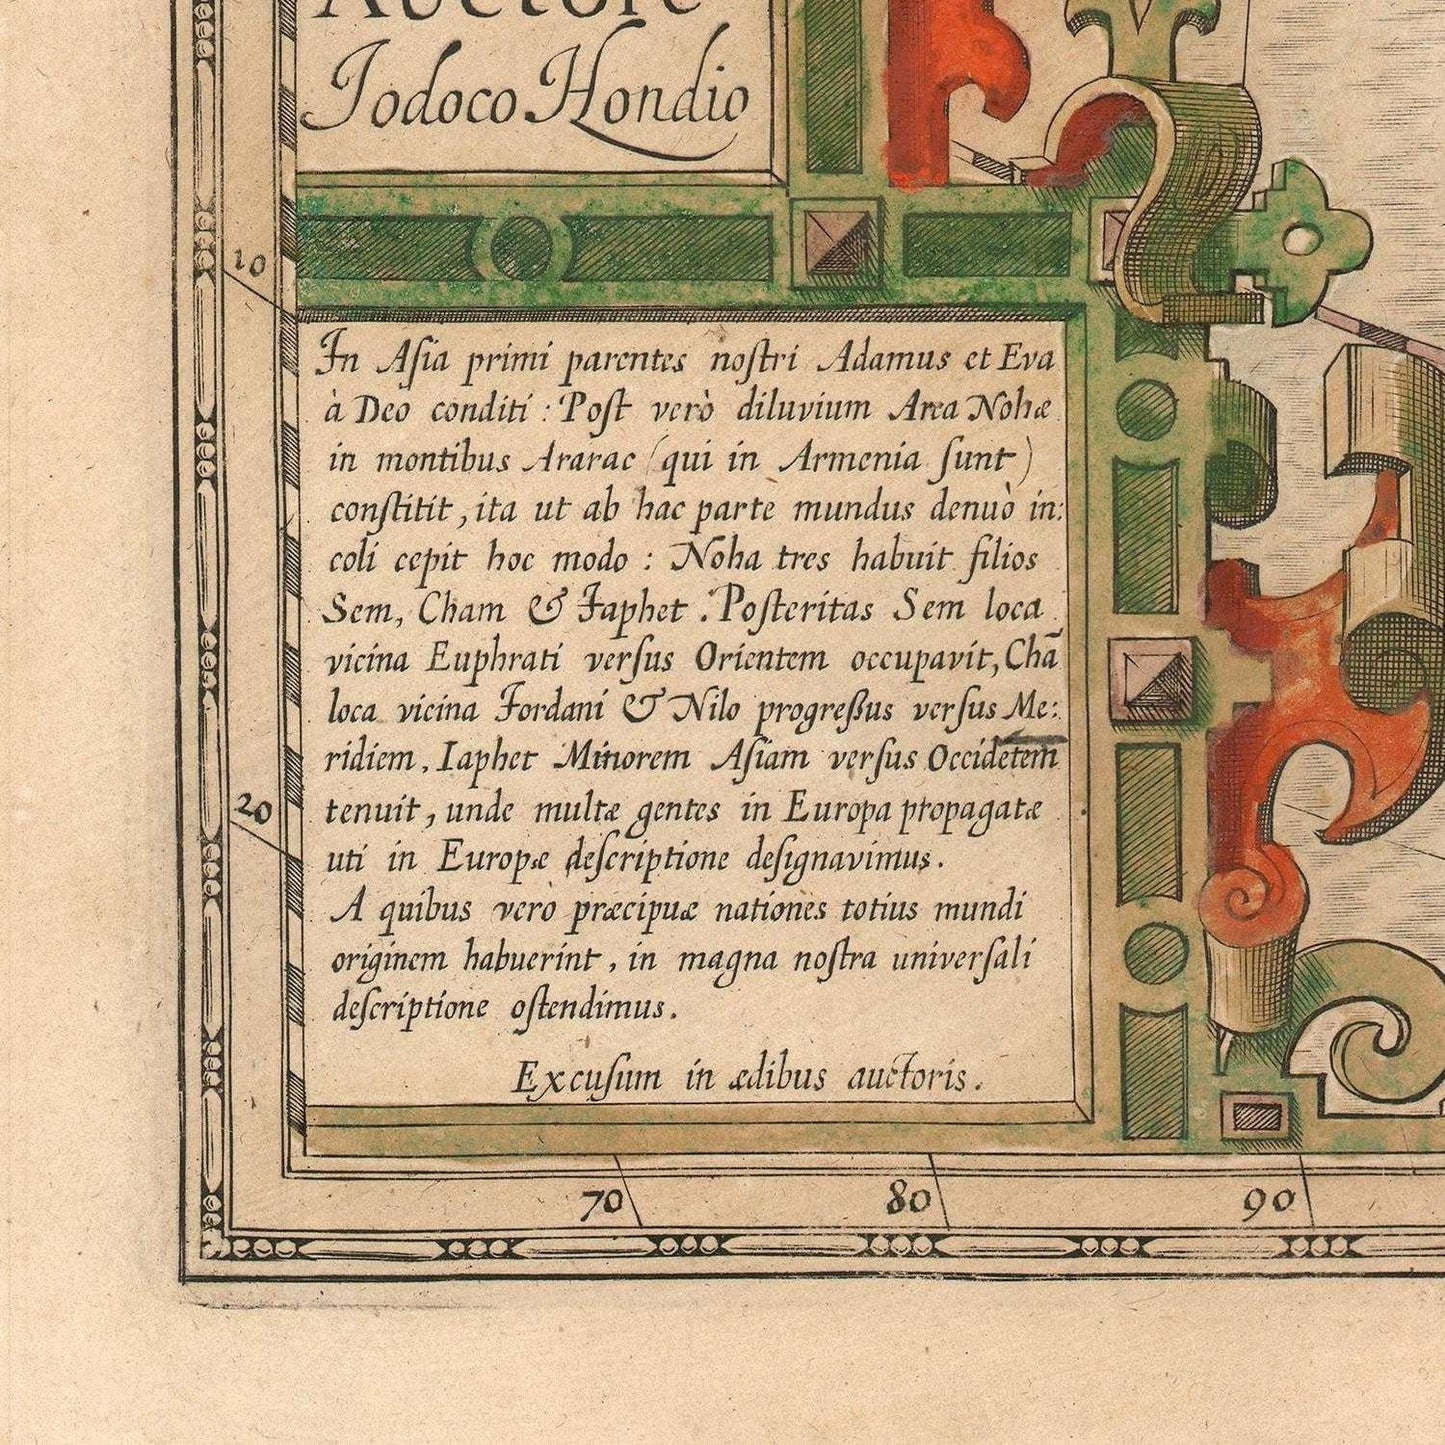 Auctore
Iodoco Hondio
10
In Aſia primi parentes noſtri Adamus et Eva
à Deo conditi : Poſt verò diluvium Arca Nohæ
in montibus Ararac (qui in Armenia ſunt)
conſtitit, ita ut ab hac parte mundus denuò in:
coli cepit hoc modo : Noha tres habuit filios
Sem, Cham & Iaphet . Poſteritas Sem loca
vicina Euphrati verſus Orientem occupavit, Chā
loca vicina Iordani & Nilo progreßus verſus Me:
ridiem, Iaphet Minorem Aſiam verſus Occidētem
tenuit, unde multæ gentes in Europa propagatæ
uti in Europæ deſcriptione deſignavimus.
A quibus verò præcipuæ nationes totius mundi
originem habuerint, in magna noſtra univerſali
deſcriptione oſtendimus.
Excuſum in ædibus auctoris.
20
70 80 90